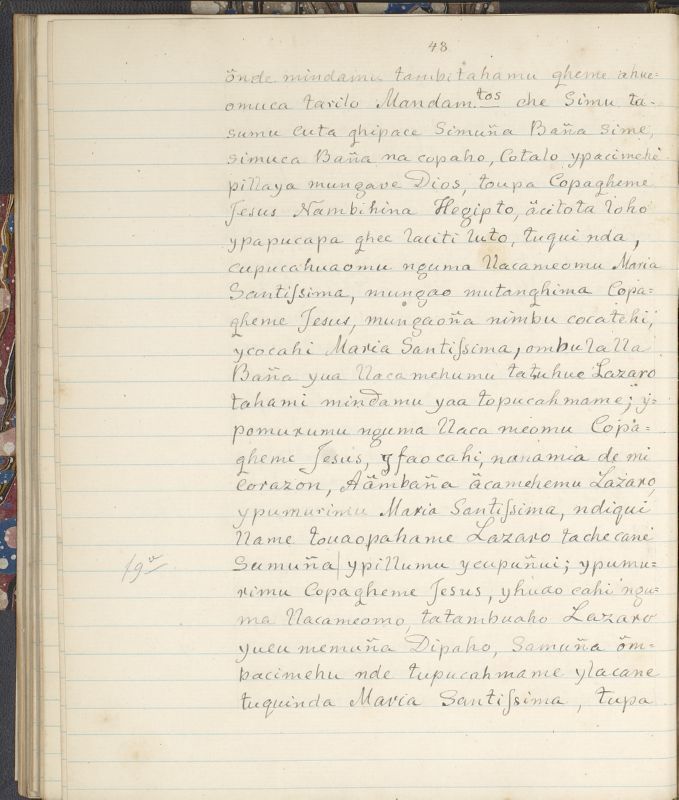 48
önde mindamu tambitahamu gheme ahue=
omuca tarilo Mandam.tos che Simu ta-
sumu Cuta ghipace Simuña Baña sime,
simuca Baña na copaho, Cotalo ypacimehe
pillaya mungave Dios, toupa Copagheme
Jesus Nambihina Hegipto, äcitota loho
ypapucapa ghec laciti luto, tuqui nda,
cupucahuaomu nguma Uacameomu Maria
Santiſsima, mungao mutanghima Copa=
gheme Jesus, mungaoña nimbu cocatehi,
ycocahi Maria Santiſsima, ombulalla
Baña yua Uacamehumu tatuhue Lazaro
tahami mindamu yaa topucahmame; ÿ=
pomurumu nguma Uaca meomu Copa=
gheme Jesus, yfaocahi, nunamia de mi
Corazon, Aämbaña äcamehemu Lazaro,
ypumurimu Maria Santiſsima, ndiqui
Uame touaopahame Lazaro tachecane
19a Samuña| ypillumu ycupuñui; ypumu=
rimu Copagheme Jesus, yhuao cahi ngu=
ma Uacameomo, tatambuaho Lazaro
yucu memuña Dipaho, Samuña öm=
bacimehu nde tupucahmame ylacane
tuquinda Maria Santiſsima, tupa